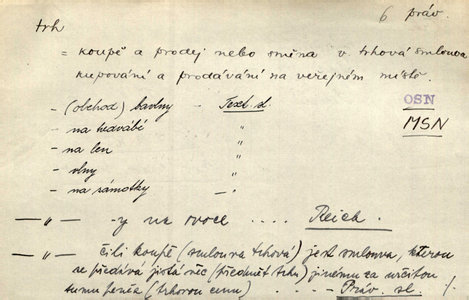 trh
6 práv.
= koupě a prodej nebo směna v. trhová smlouva
kupování a prodávání na veřejném místě.
OSN
MSN
- (obchod) bavlny - Text. sl.
- na hedvábí "
- na len "
- vlny "
- na šámotky - " -
— " — - y na ovoce .... Reich.
— " — čili koupě (smlouva trhová) jest smlouva, kterou
se předává jistá věc (předmět trhu) jinému za určitou
sumu peněz (trhovou cenu) .... Práv. sl. /.